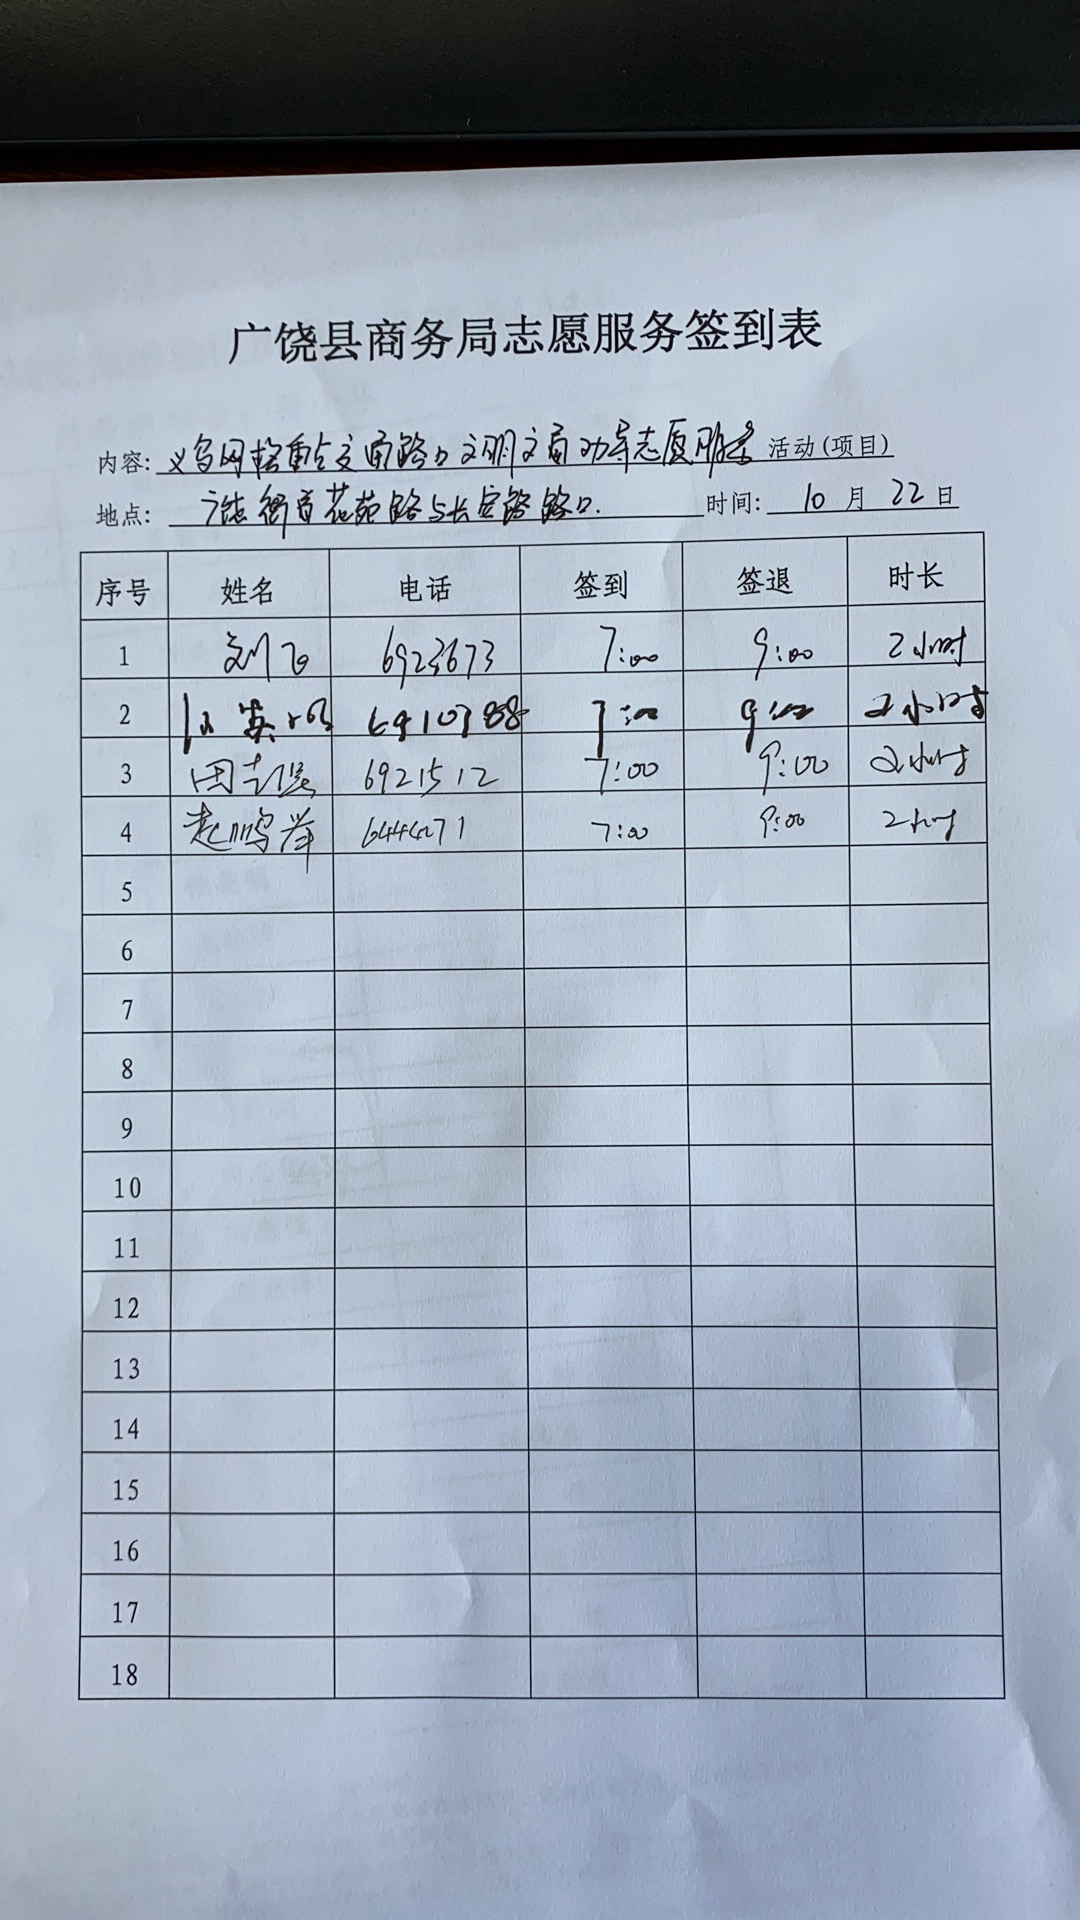 广饶县商务局志愿服务签到表
内容: 义乌网格重点交通路口文明交通劝导志愿服务 活动(项目)
地点: 广饶街道花苑路与长安路路口. 时间: 10 月 22 日
序号 姓名 电话 签到 签退 时长
1 刘飞 6923673 7:00 9:00 2小时
2 7:00 9:00 2小时
3 6921512 7:00 9:00 2小时
4 7:00 9:00 2小时
5
6
7
8
9
10
11
12
13
14
15
16
17
18